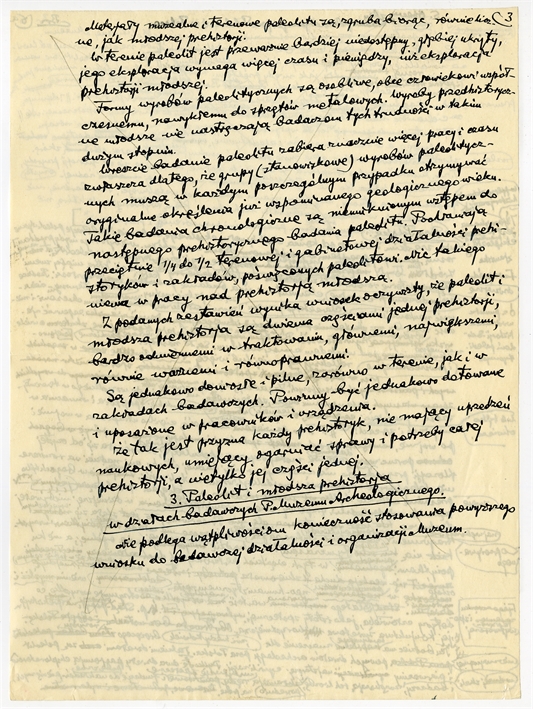 3
Materjały muzealne i terenowe paleolitu są, zgruba biorąc, równie licz-
ne, jak młodszej prehistorji.
W terenie paleolit jest przeważnie bardziej niedostępny, głębiej ukryty,
jego eksploracja wymaga więcej czasu i pieniędzy, niż eksploracja
prehistorji młodszej.
Formy wyrobów paleolitycznych są osobliwe, obce człowiekowi współ-
czesnemu, nawykłemu do sprzętów metalowych. Wyroby przedhistorycz-
ne młodsze nie nastręczają badaczom tych trudności w takim
dużym stopniu.
Wreszcie badanie paleolitu zabiera znacznie więcej pracy i czasu
zwłaszcza dlatego, że grupy (stanowiskowe) wyrobów paleolitycz-
nych muszą w każdym poszczególnym przypadku otrzymywać
oryginalne określenia już wspomnianego geologicznego wieku.
Takie badania chronologiczne są nieuniknionym wstępem do
następnego prehistorycznego badania paleolitu. Pochłaniają
przeciętnie 1/4 do 1/2 terenowej i gabinetowej działalności prehi-
storyków i zakładów, poświęconych paleolitowi. Nic takiego
niema w pracy nad prehistorją młodszą.
Z podanych zestawień wynika wniosek oczywisty, że paleolit i
młodsza prehistorja są dwiema częściami jednej prehistorji,
bardzo odmiennemi w traktowaniu, głównemi, największemi,
równie ważnemi i równoprawnemi.
Są jednakowo doniosłe i pilne, zarówno w terenie, jak i w
zakładach badawczych. Powinny być jednakowo dotowane
i uposażone w pracowników i urządzenia.
Że tak jest przyzna każdy prehistoryk, nie mający uprzedzeń
naukowych, umiejący ogarniać sprawy i potrzeby całej
prehistorji, a nietylko jej części jednej.
3. Paleolit i młodsza prehistorja
w działach badawczych P. Muzeum Archeologicznego.
Nie podlega wątpliwościom konieczność stosowania powyższego
wniosku do badawczej działalności i organizacji Muzeum.